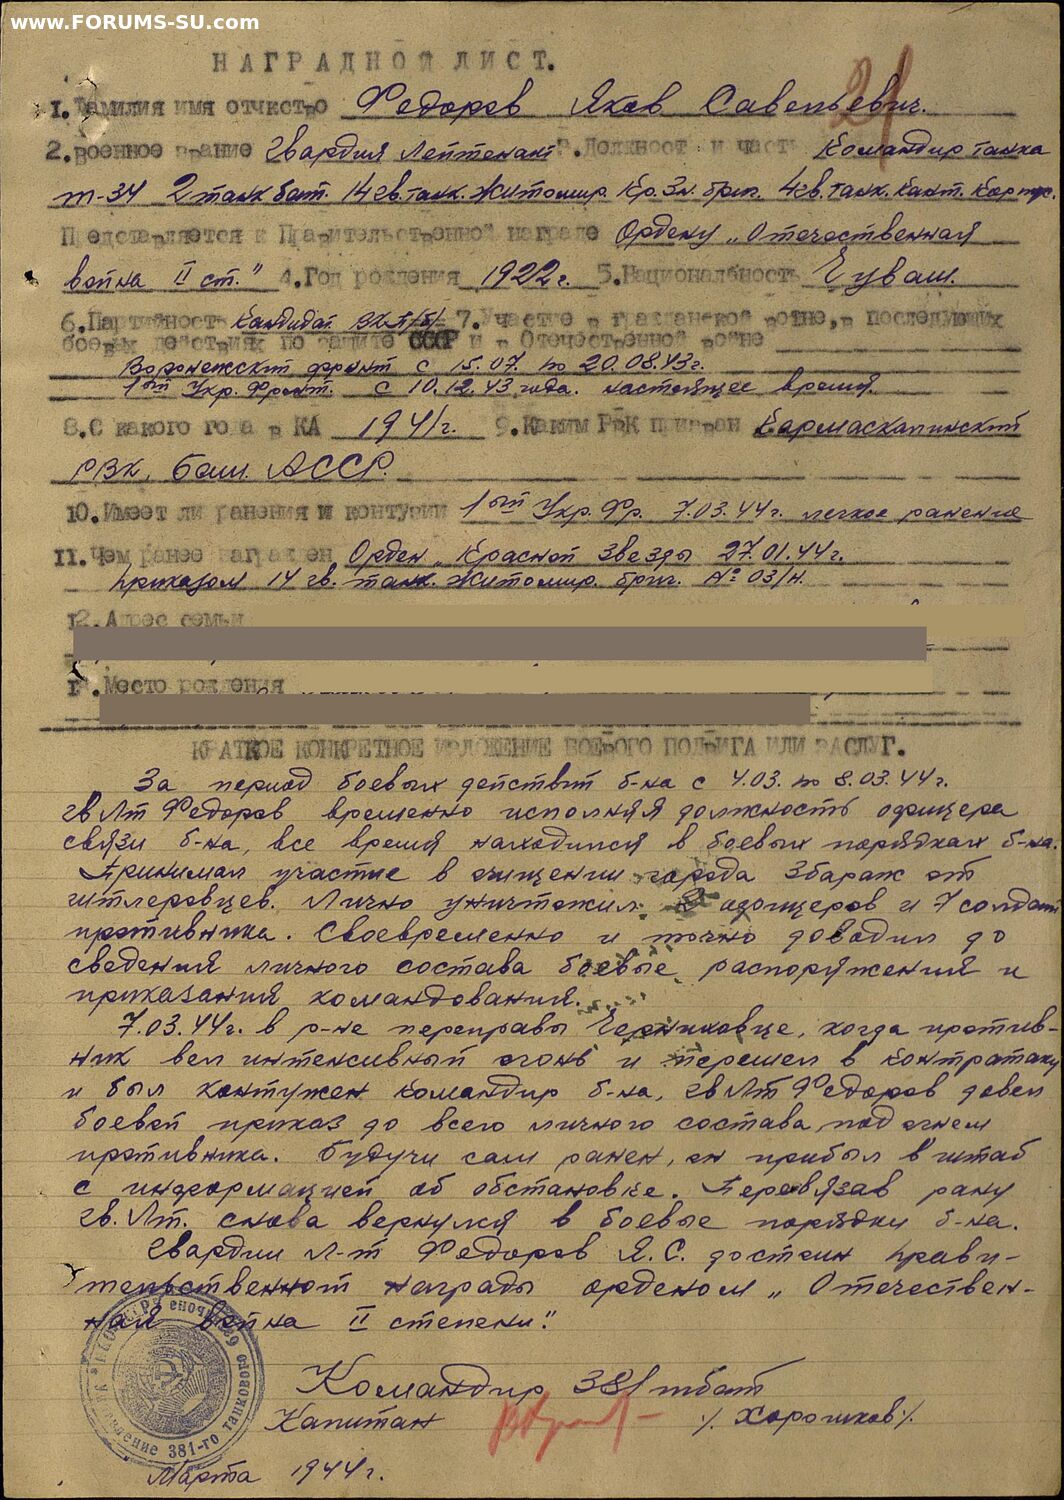 www.FORUMS-SU.com
21
НАГРАДНОЙ ЛИСТ.
1. Фамилия имя отчество Федоров Яков Савельевич.
2. Военное звание Гвардия Лейтенант 3. Должность и часть Командир танка
т-34 2 танк бат. 14 гв. танк. Житомир. Кр. Зн. бриг. 4 гв. танк. Кант. Корпус.
Представляется к Правительственной награде Ордену „Отечественная
война II ст." 4. Год рождения 1922 г. 5. Национальность Чуваш.
6. Партийность Кандидат ВКП/б/ 7. Участие в гражданской войне, в последующих
боевых действиях по защите СССР и в Отечественной войне
Воронежский фронт с 15.07. по 20.08.43г.
1ый Укр. Фронт. с 10.12.43 года. настоящее время.
8. С какого года в КА 1941г. 9. Каким РВК призван Кармаскалинский
РВК, Баш. АССР.
10. Имеет ли ранения и контузии 1ый Укр. Фр. 7.03.44г. легкое ранение
11. Чем ранее награжден Орден „Красной Звезды 27.01.44г.
приказом 14 гв. танк. Житомир. бриг. № 03/н.
12. Адрес семьи
13. Место рождения
КРАТКОЕ КОНКРЕТНОЕ ИЗЛОЖЕНИЕ БОЕВОГО ПОДВИГА ИЛИ ЗАСЛУГ.
За период боевых действий б-на с 4.03. по 8.03.44г.
гв Лт Федоров временно исполняя должность офицера
связи б-на, все время находился в боевых порядках б-на.
Принимал участие в очищении города Збараж от
гитлеровцев. Лично уничтожил офицеров и 7 солдат
противника. Своевременно и точно доводил до
сведения личного состава боевые распоряжения и
приказания командования.
7.03.44г. в р-не переправы Черниховце, когда против-
ник вел интенсивный огонь и перешел в контратаку
и был контужен командир б-на, гв Лт Федоров довел
боевой приказ до всего личного состава под огнем
противника. Будучи сам ранен, он прибыл в штаб
с информацией об обстановке. Перевязав рану
гв. Лт. снова вернулся в боевые порядки б-на.
Гвардии Л-т Федоров Я.С. достоин прави-
тельственной награды орденом „Отечествен-
ная война II степени".
Командир 381 тбат
Капитан /Хорошков/.
Марта 1944г.
381-го танкового